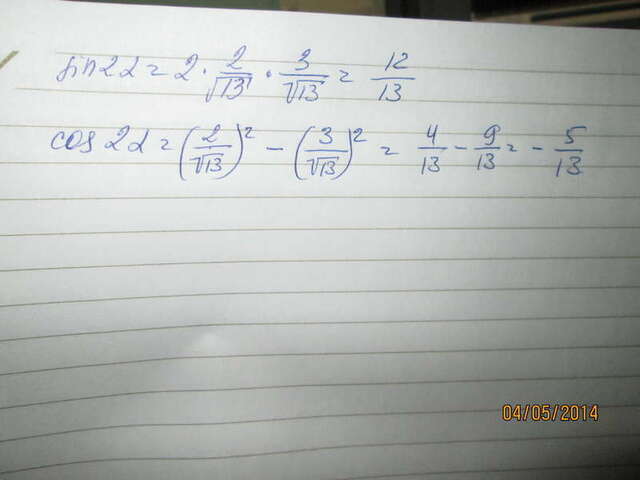 sin2α = 2 · 2/√13 · 3/√13 = 12/13
cos 2α = (2/√13)² - (3/√13)² = 4/13 - 9/13 = - 5/13
04/05/2014